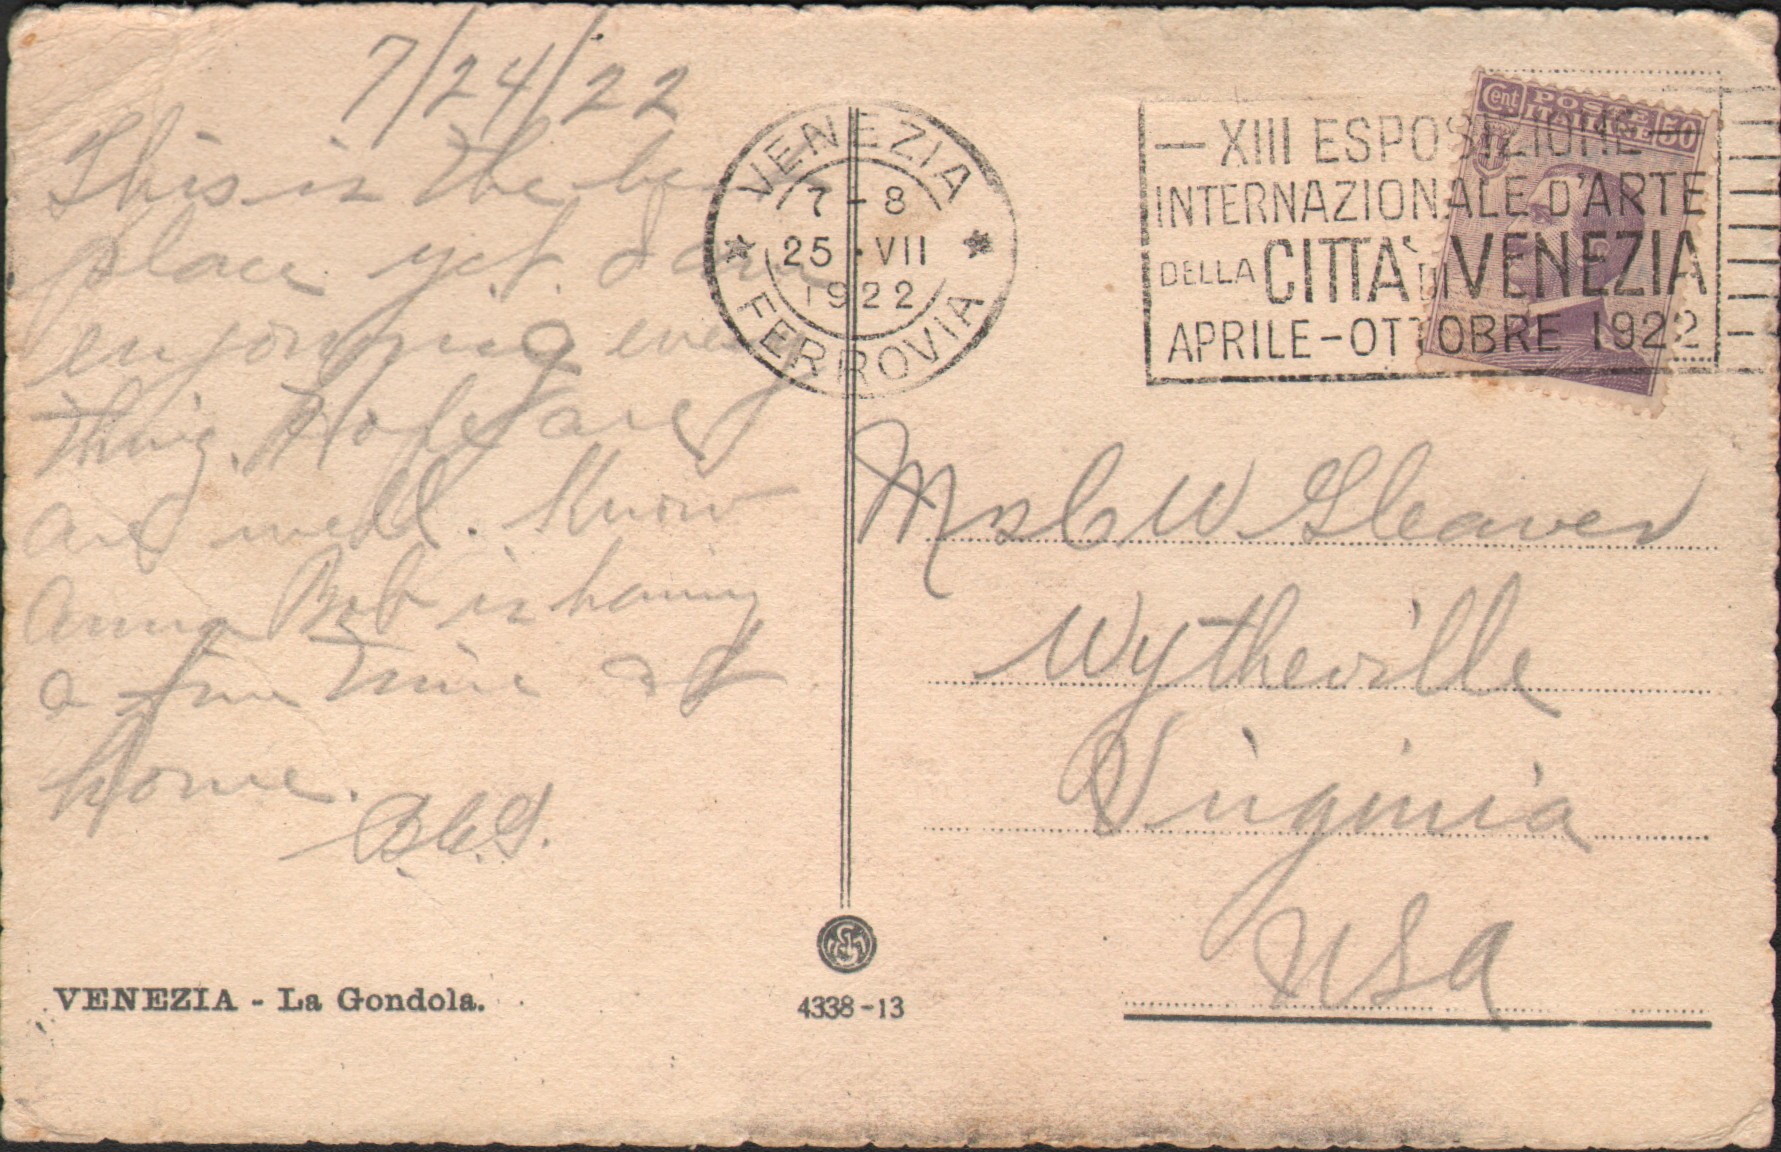 7/24/22
This is the best
place yet. I am
enjoying every
thing. Hope you
are well. Know
Anna Bob is having
a fine time at
home.
B.C.G.
VENEZIA - La Gondola.
VENEZIA
7-8
25·VII
1922
FERROVIA
4338-13
Cent POSTE ITALIANE 50
— XIII ESPOSIZIONE —
INTERNAZIONALE D'ARTE
DELLA CITTA' DI VENEZIA
APRILE-OTTOBRE 1922
Mrs C W Gleaves
Wytheville
Virginia
USA